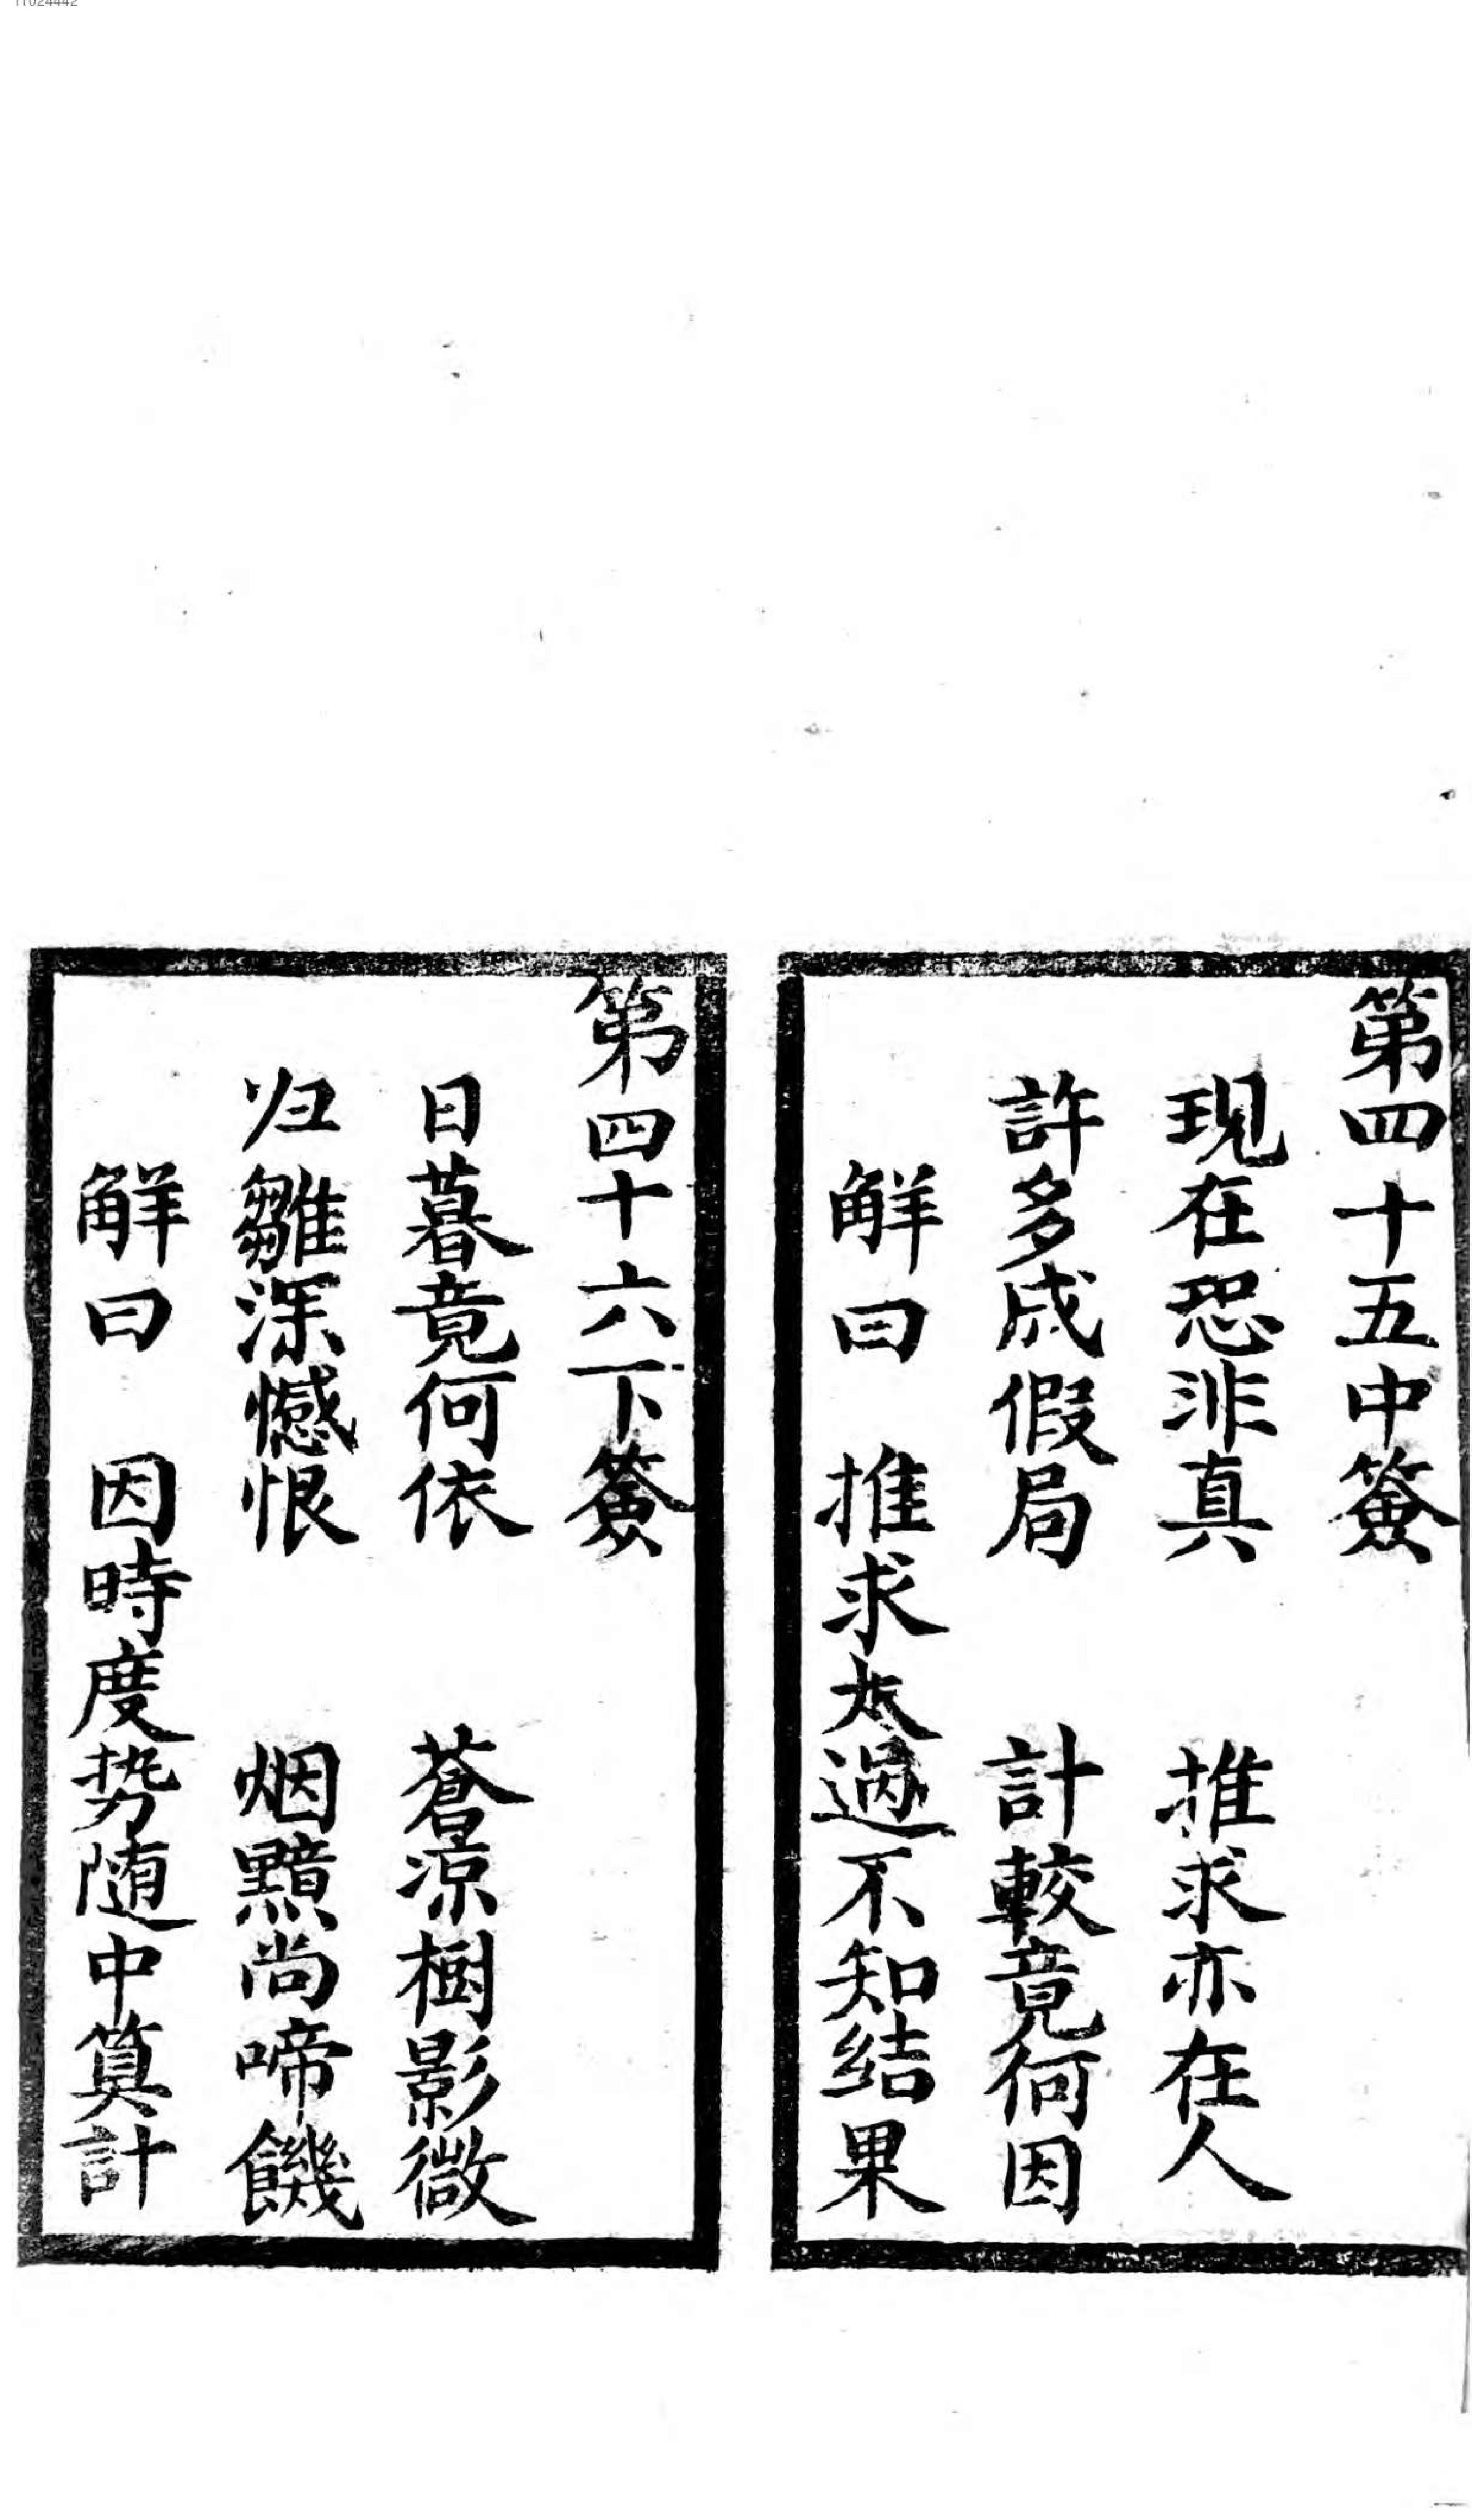 第四十五中簽
現在恐非真 推求亦在人
許多成假局 計較竟何因
解曰 推求太過不知结果
第四十六下簽
日暮竟何依 蒼凉樹影微
归雛深憾恨 烟黯尚啼饑
解曰 因時度势随中算計